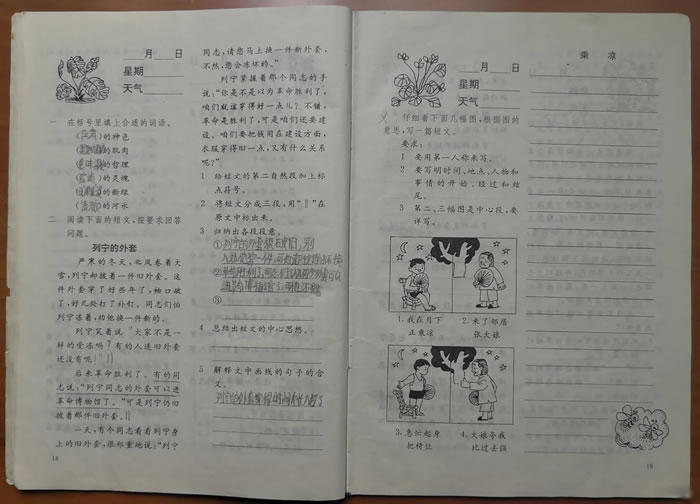 月 日
星期
天气
一 在括号里填上合适的词语。
( )的神色
( )的肌肉
( )的哲理
( )的灵魂
( )的新绿
( )的河水
二 阅读下面的短文,按要求回答
问题。
列宁的外套
严寒的冬天,北风卷着大
雪,列宁却披着一件旧外套。这
件外套穿了好些年了,袖口破
了,好几处打了补钉。同志们怕
列宁冻着,劝他换一件新的。
列宁笑着说:“大家不是一
样的受冻吗?有的人连旧外套
还没有呢!”‖
后来革命胜利了,有的同
志说:“列宁同志的外套可以进
革命博物馆了。”可是列宁仍旧
披着那件旧外套。‖
一天,有个同志看看列宁身
上的旧外套,很郑重地说:“列宁
18
同志,请您马上换一件新外套,
不然,您会冻坏的。”
列宁紧握着那个同志的手
说:“你是不是以为革命胜利了,
咱们就该穿得好一点儿?不错,
革命是胜利了,可是咱们还要建
设。咱们要把钱用在建设方面,
衣服穿得旧一点,又有什么关系
呢?”
1 给短文的第二自然段加上标
点符号。
2 将短文分成三段,用“‖”在
原文中标出来。
3 归纳出各段段意。
①列宁的外套很破旧,别
②
③
4 总结出短文的中心思想。
5 解释文中画线的句子的含
义。
列宁的外套穿得时间有什么了
月 日
星期
天气
乘凉
仔细看下面几幅图,根据图的
意思,写一篇短文。
要求:
1 要用第一人称来写。
2 要写明时间、地点、人物和
事情的开始、经过和结
尾。
3 第二、三幅图是中心段,要
详写。
1.我在月下
正乘凉
2.来了邻居
张大娘
3.急忙起身
把椅让
4.大娘夸我
比过去强
19